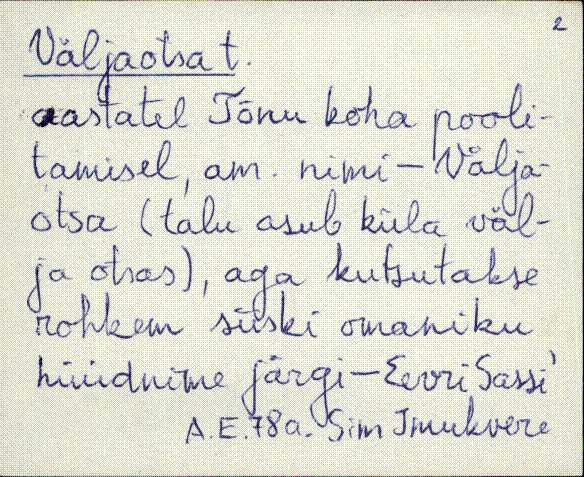 2
Väljaotsa t.
aastatel Tõnu koha pooli-
tamisel, am. nimi - Välja-
otsa (talu asub küla väl-
ja otsas), aga kutsutakse
rohkem siiski omaniku
hüüdnime järgi - Eevri Sassi'
A. E. 78 a. Sim Imukvere